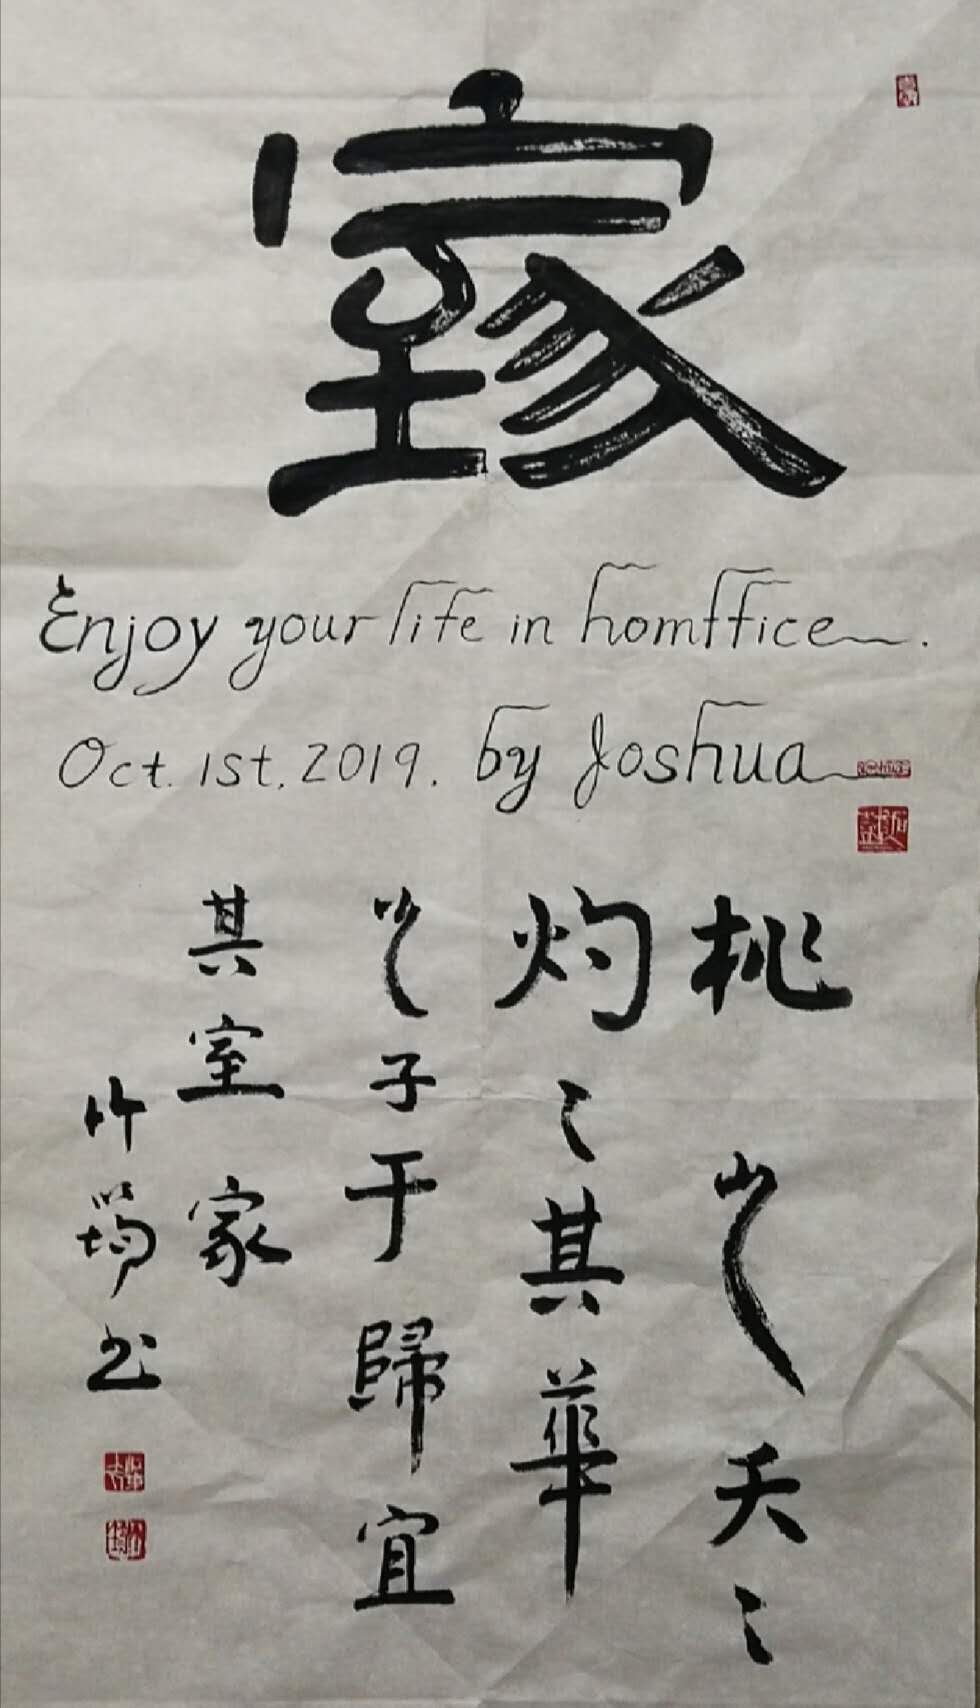 Enjoy your life in homffice.
Oct. 1st, 2019. by Joshua
桃之夭〻
灼〻其華
之子于歸宜
其室家
竹筠书